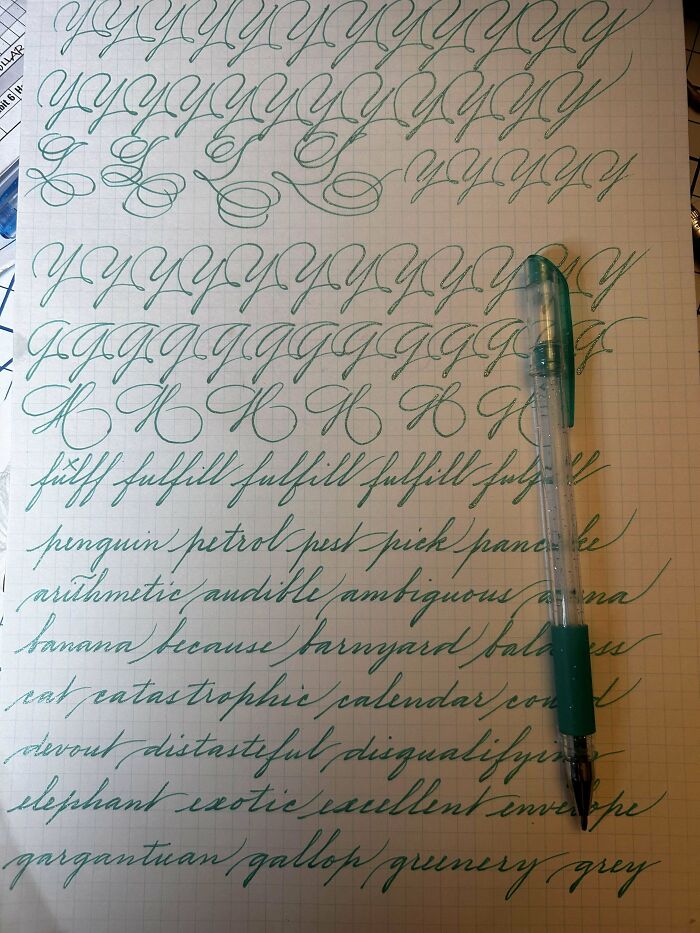 Y Y Y Y Y Y Y Y Y Y Y Y
Y Y Y Y Y Y Y Y Y Y Y Y
L L L L Y Y Y Y Y
Y Y Y Y Y Y Y Y Y Y Y Y
G G G G G G G G G G G G
H H H H H H
fulff fulfill fulfill fulfill fulfill
penguin petrol pest pick pancake
arithmetic audible ambiguous
banana because barnyard
cat catastrophic calendar could
devout distasteful disqualifying
elephant exotic excellent envelope
gargantuan gallop greenery grey